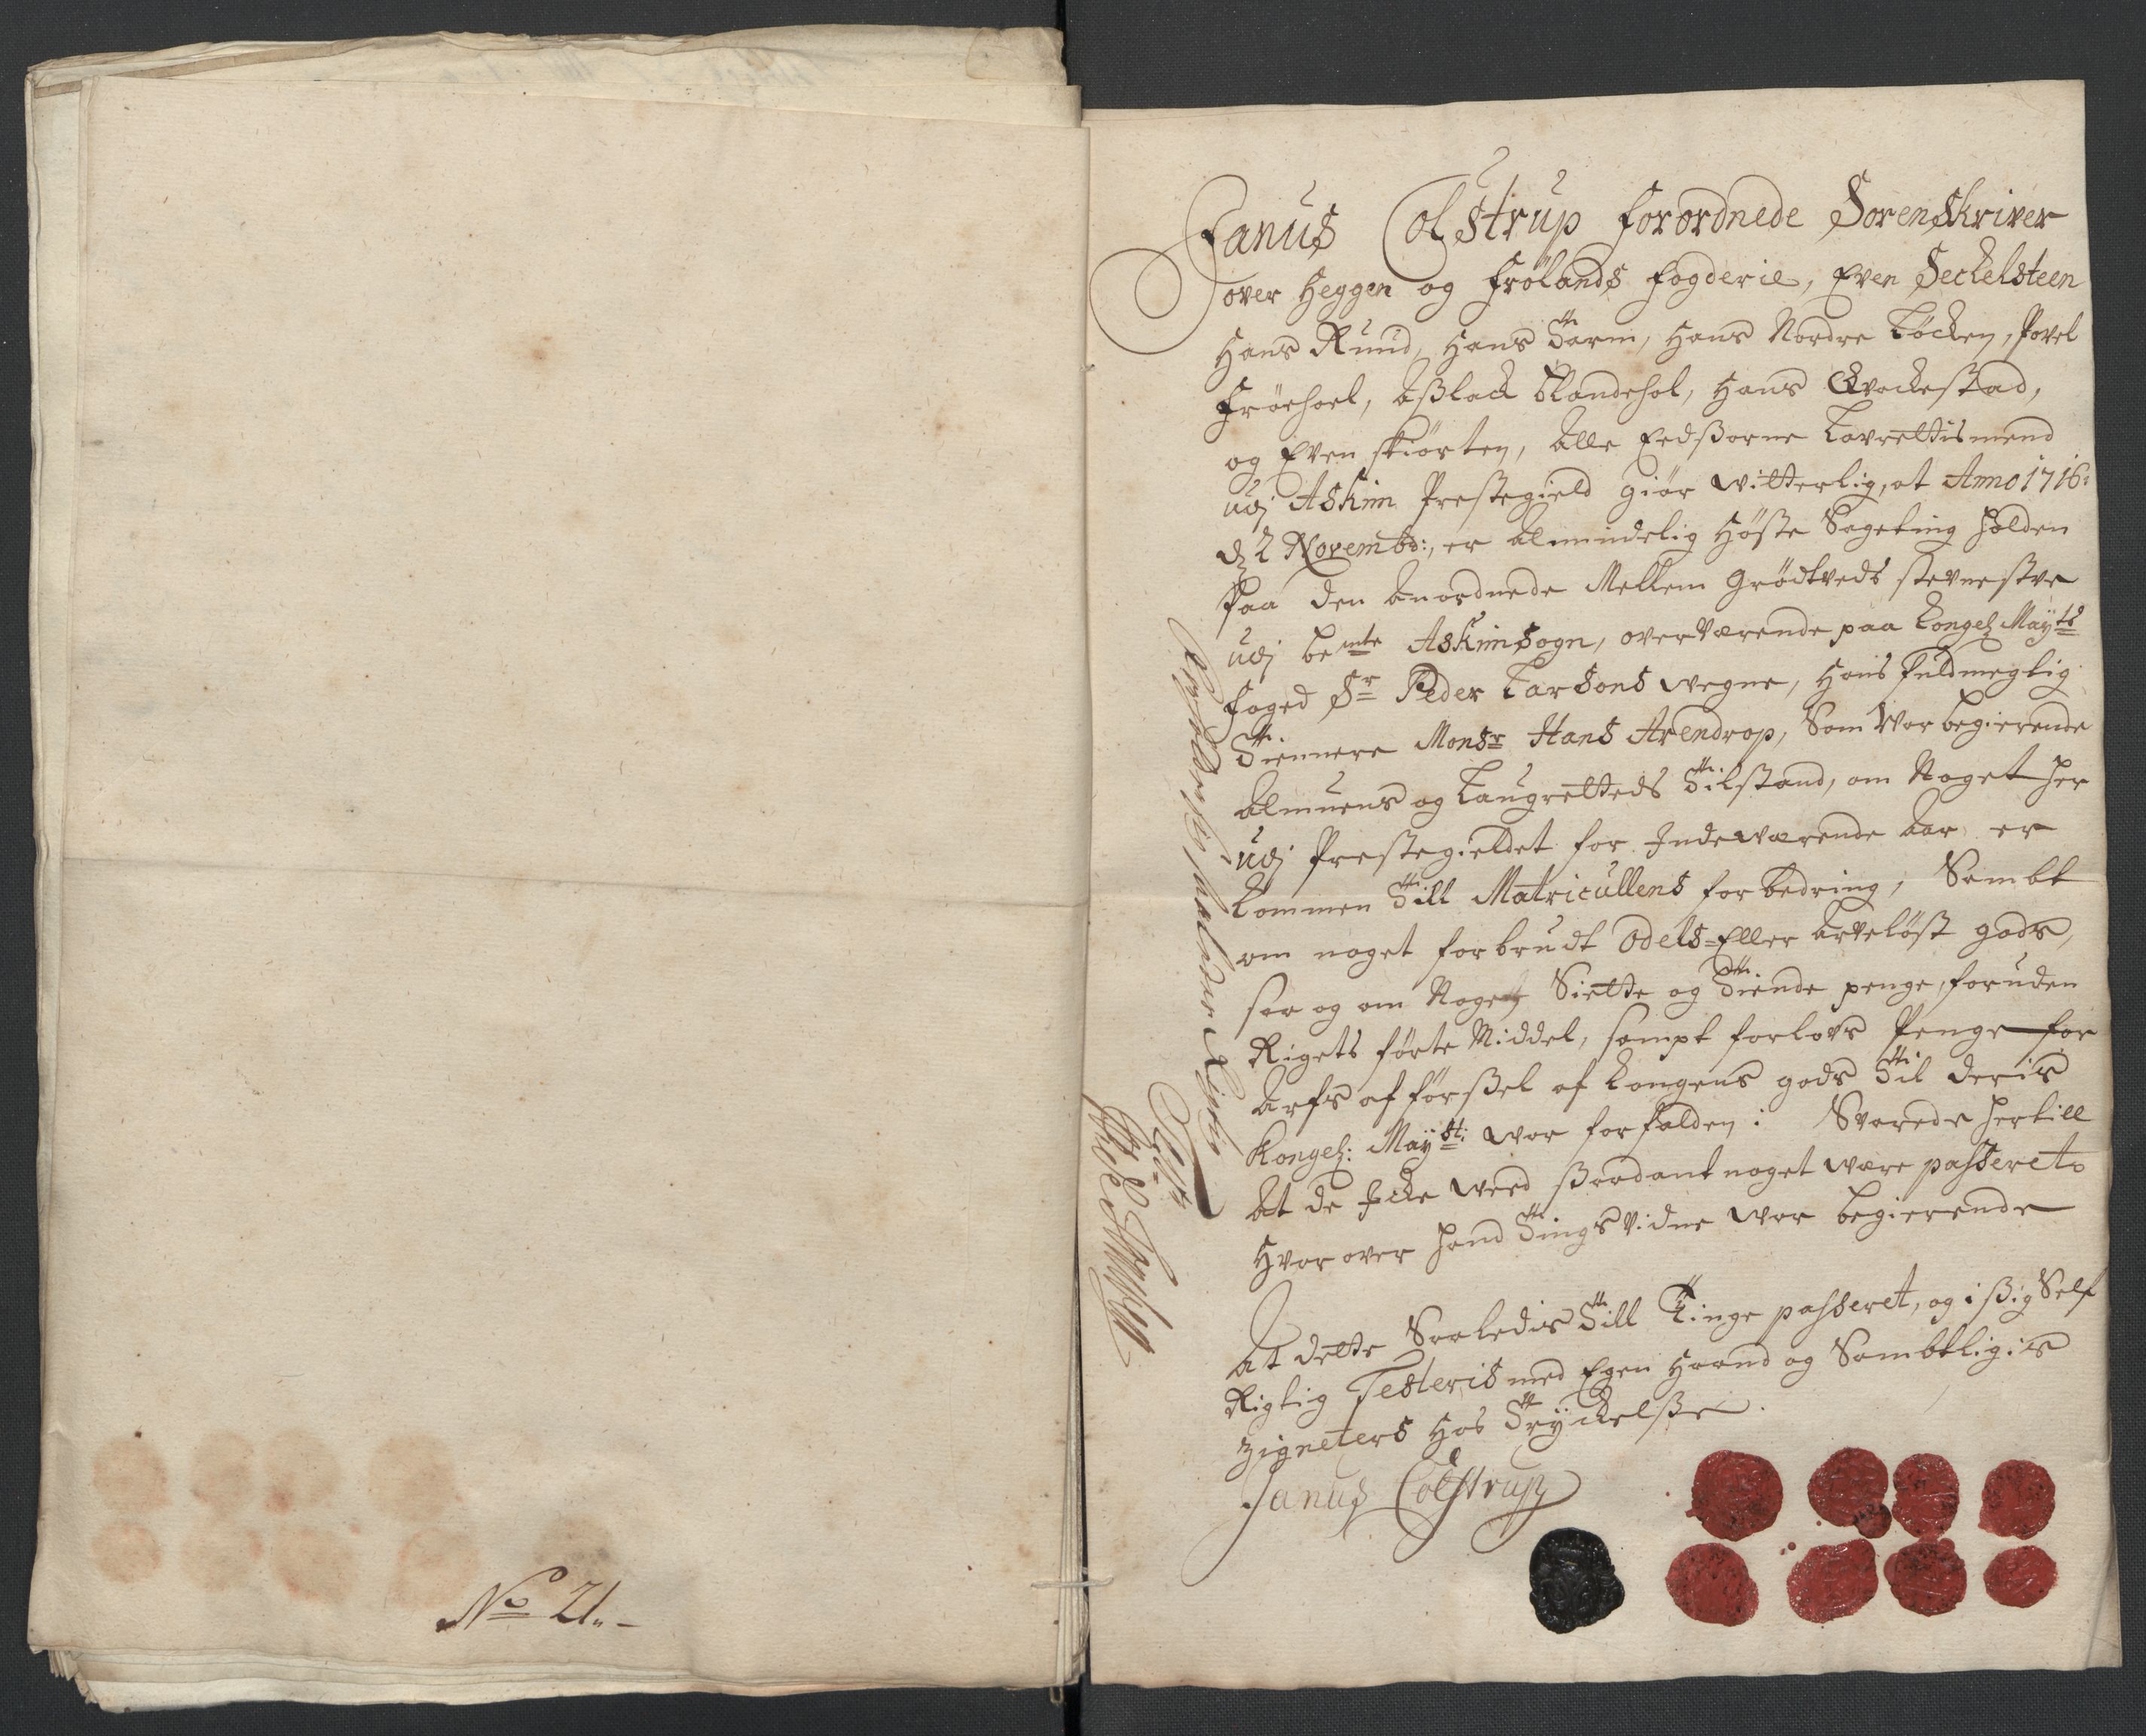 No 21.-
Janus Colstrup forordnede Sorenskriver
over Heggen og Frølands fogderie, Even Seckelsteen
Hans Ruud, Hans Torm, Hans Nordre Løcken, Povel
Frøshoel, Aslack Hol, Hans Qvackestad,
og Even skiørten, alle Eedsorne Lavrettismend
udj Askim Prestegield giør witterlig, at Anno 1716:
d 2 Novembr:, er almindelig Høste Sageting holden
paa den anordnede Mellem Grødtveds stevnestue
udj bemte Askim Sogn, overværende paa Kongel Maÿts
foged Sr Peder Larsons wegne, hans fuldmegtig
Tiennere Monsr Hans Arendrop, Som War begierende
almuens og Laugrettes Tilstand, om Noget her
udj Prestegieldet for Indeværende aar er
kommen Till Matricullens forbedring, Sambt
om noget forbrudt Odels- Eller arveløst gods,
saa og om Noget Siette og Tiende penge, foruden
Rigets førte Middel, sampt forlovs Penge for
arfs afførsel af Kongens gods Til deris
Kongel: Maÿst: war forfalden: Svarede hertill
at de Icke weed saadant noget wære passeret
Hvorover hand Tingsvidne war begierende
At dette Saaledis Till Tinge passeret, og i sig Self
Rigtig Testeris med Egen Haand og Sambtligis
zigneters Hos Trÿckelsse.
Janus Colstrup